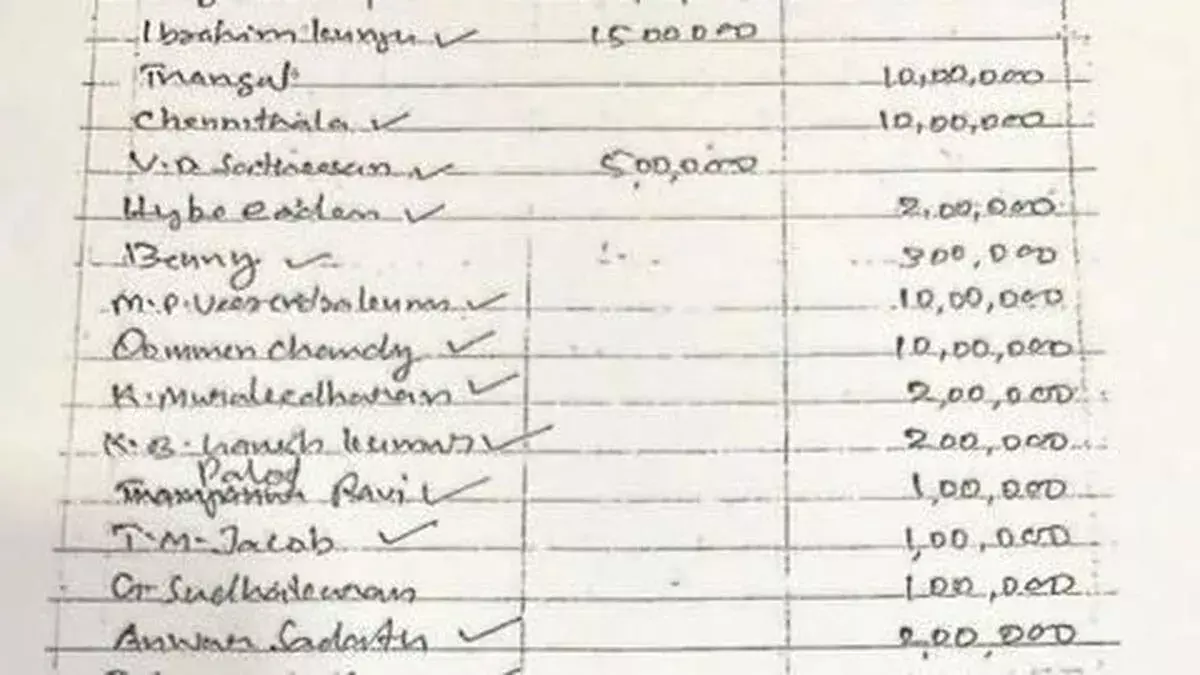 Ibrahim kunju ✓ 1500000
Thangal 10,00,000
Chennithala ✓ 10,00,000
V.D Satheesan ✓ 5,00,000
Hybe eaden ✓ 2,00,000
Benny ✓ 300,000
M.P. Veerendrakumar ✓ 10,00,000
Oommen Chandy ✓ 10,00,000
K. Muraleedharan ✓ 2,00,000
K.B. Ganesh kumar ✓ 200,000
Palod
Ravi ✓ 1,00,000
T.M. Jacob ✓ 1,00,000
G Sudhakaran 1,00,000
Anwar Sadath ✓ 2,00,000